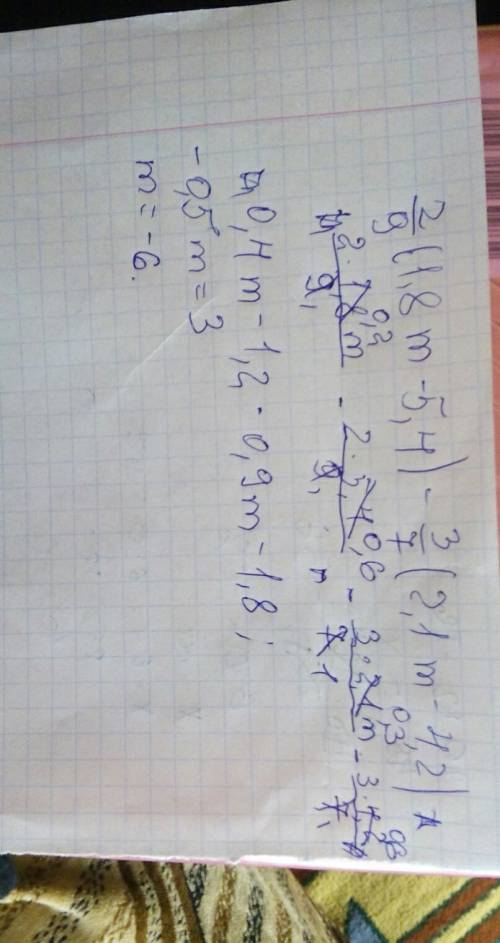 2/9 (1,8 m - 5,4) - 3/7 (2,1 m - 4,2)
2 · 1,8 m / 9 - 2 · 5,4 / 9 - 3 · 2,1 m / 7 - 3 · 4,2 / 7
0,4 m - 1,2 - 0,9 m - 1,8 ;
- 0,5 m = 3
m = -6.